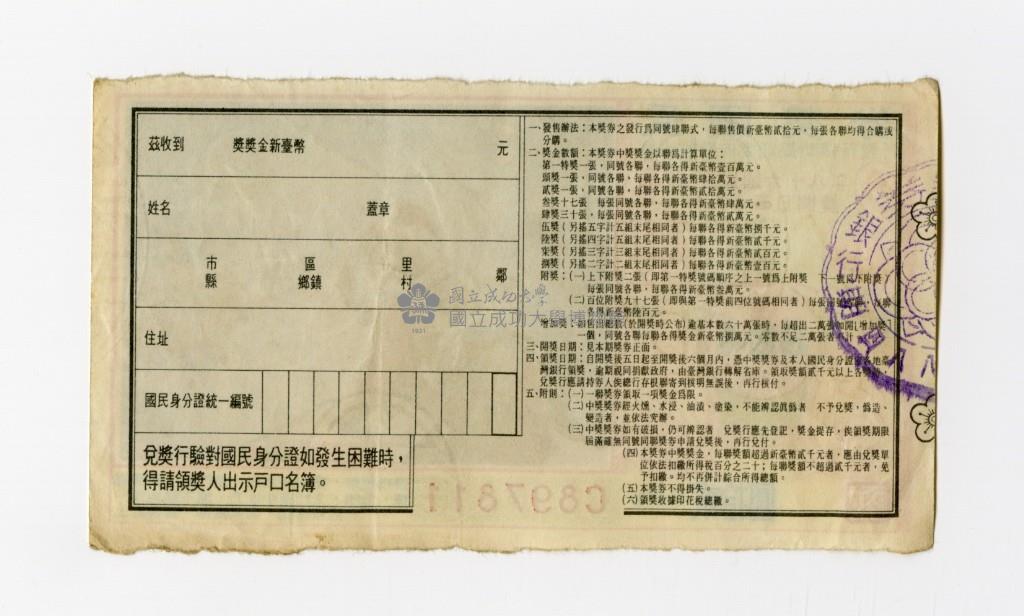 茲收到 獎獎金新臺幣 元
姓名 蓋章
市 區 里
縣 鄉鎮 村 鄰
住址
國民身分證統一編號
兌獎行驗對國民身分證如發生困難時，
得請領獎人出示戶口名簿。
一、發售辦法：本獎券之發行爲同號肆聯式，每聯售價新臺幣貳拾元，每張各聯均得合購或
分購。
二、獎金數額：本獎券中獎獎金以聯爲計算單位：
第一特獎一張，同號各聯，每聯各得新臺幣壹百萬元。
頭獎一張，同號各聯，每聯各得新臺幣肆拾萬元。
貳獎一張，同號各聯，每聯各得新臺幣貳拾萬元。
叁獎十七張 每張同號各聯，每聯各得新臺幣肆萬元。
肆獎三十張，每張同號各聯，每聯各得新臺幣貳萬元。
伍獎（另搖五字計五組末尾相同者）每聯各得新臺幣捌千元。
陸獎（另搖四字計五組末尾相同者）每聯各得新臺幣貳千元。
柒獎（另搖三字計三組末尾相同者）每聯各得新臺幣貳百元。
捌獎（另搖二字計二組末尾相同者）每聯各得新臺幣壹百元。
附獎：（一）上下附獎二張（即第一特獎號碼順序之上一號爲上附獎 下一號爲下附獎）
每張同號各聯，每聯各得新臺幣叁萬元。
（二）百位附獎九十七張（即與第一特獎前四位號碼相同者）每張同號各聯，每聯
各得新臺幣陸百元。
增加獎：銷售出總數（於開獎時公布）逾基本數六十萬張時，每超出二萬張加開「增加獎」
一個，同號各聯每聯各得獎金新臺幣捌萬元。零數不足二萬張者不計
三、開獎日期：見本期獎券正面。
四、領獎日期：自開獎後五日起至開獎後六個月內，憑中獎獎券及本人國民身分證向各地臺
灣銀行領獎，逾期視同捐獻政府，由臺灣銀行轉解名庫。領取獎額貳千元以上各獎
兌獎行應請持券人俟總行存根聯寄到核明無誤後，再行核付。
五、附則：（一）一聯獎券領取一項獎金爲限。
（二）中獎獎券經火燻、水浸、油漬、塗染，不能辨認眞僞者 不予兌獎，僞造、
變造者，並依法究辦。
（三）中獎獎券如有破損，仍可辨認者 兌獎行應先登記，獎金提存，俟領獎期限
屆滿確無同號同聯獎券申請兌獎後，再行兌付。
（四）本獎券中獎獎金，每聯獎額超過新臺幣貳千元者，應由兌獎單
位依法扣繳所得稅百分之二十；每聯獎額不超過貳千元者，免
予扣繳。均不再併計綜合所得總額。
（五）本獎券不得掛失。
（六）領獎收據印花稅總繳。
國立成功大學
國立成功大學博
1931
C897811